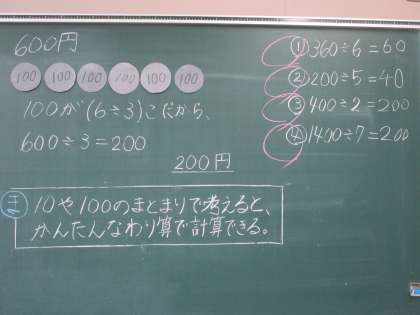 600円
100 100 100 100 100 100
100が(6÷3)こだから、
600÷3=200
200円
ま 10や100のまとまりで考えると、
かんたんなわり算で計算できる。
① 360÷6=60
② 200÷5=40
③ 400÷2=200
④ 1400÷7=200